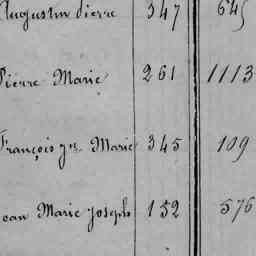 Augustin Pierre 347 645
Pierre Marie 261 1113
François Jn Marie 345 109
Jean Marie Joseph 152 576